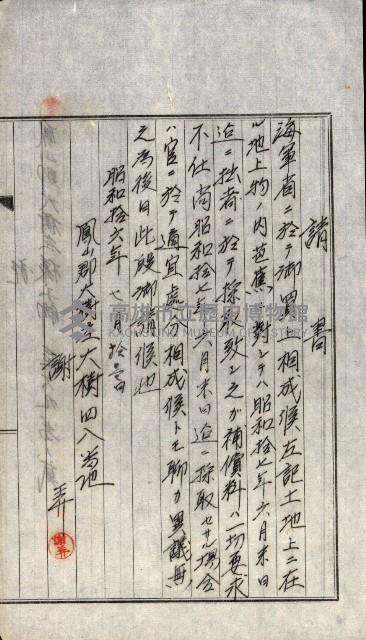 請書
海軍省ニ於テ御買上相成候左記土地上ニ在
ル地上物ノ内芭蕉ニ對シテハ昭和拾七年六月末日
迄ニ拙者ニ於テ採取致シ之ガ補償料ハ一切要求
不仕尚昭和拾七年六月末日迄ニ採取セサル場合
ハ官ニ於テ適宜處分相成候トモ聊カ異議無
之為後日此段御請候也
昭和拾六年 七月拾 日
鳳山郡大樹庄大樹四八番地
謝 弄
高雄市立歷史博物館